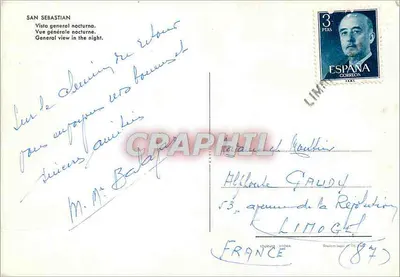 SAN SEBASTIAN
Vista general nocturna.
Vue générale nocturne.
General view in the night.
3
PTAS
ESPAÑA
CORREOS
Sur le chemin du retour
vous envoyons nos bonnes et
sincères amitiés
M. Me
CPAPHIL
GAUDY
53, avenue de la Révolution
LIMOGES
FRANCE (87)